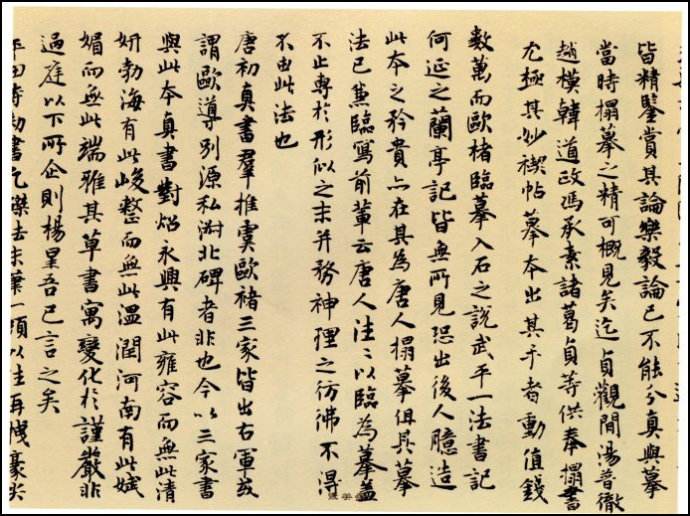 皆精鑒賞其論樂毅論已不能分真與摹
當時搨摹之精可概見矣迄貞觀間湯普徹
趙模韓道政馮承素諸葛貞等供奉搨書
尤極其妙禊帖摹本出其手者動值錢
數萬而歐褚臨摹入石之說武平一法書記
何延之蘭亭記皆無所見恐出後人臆造
此本之矜貴亦在其為唐人搨摹但其摹
法已兼臨寫前輩云唐人往〻以臨為摹蓋
不止專於形似之求并務神理之彷彿不得
不由此法也
唐初真書羣推虞歐褚三家皆出右軍或
謂歐導別源私淑北碑者非也今以三家書
與此本真書對炤永興有此雍容而無此清
妍勃海有此峻整而無此溫潤河南有此娬
媚而無此端雅其草書寓變化於謹嚴非
過庭以下所企則楊星吾已言之矣